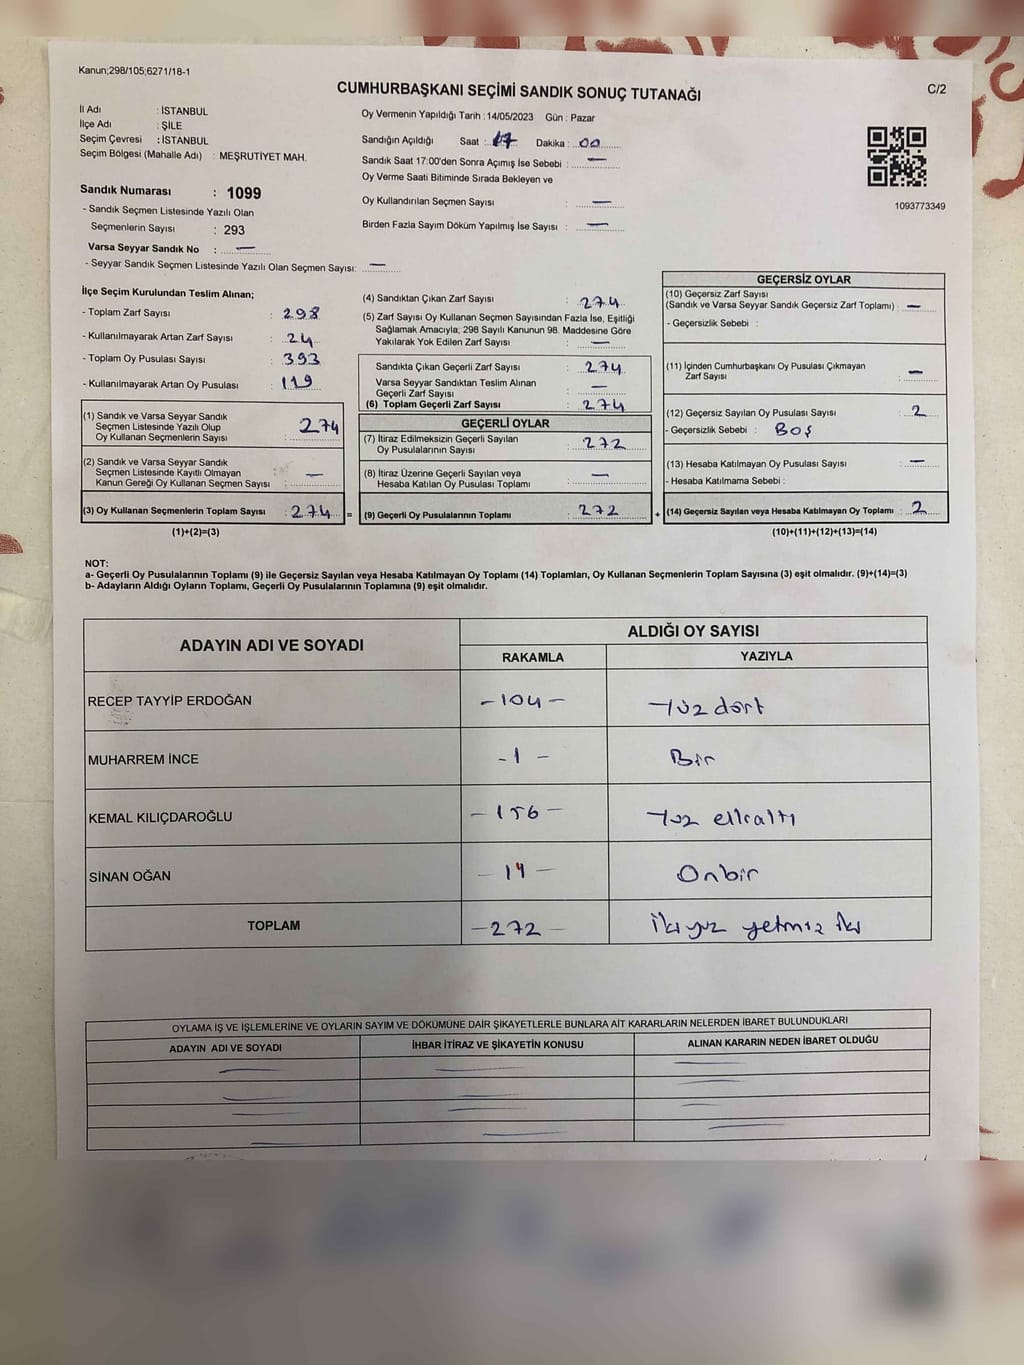 Kanun;298/105;6271/18-1
C/2
CUMHURBAŞKANI SEÇİMİ SANDIK SONUÇ TUTANAĞI
İl Adı : İSTANBUL
İlçe Adı : ŞİLE
Seçim Çevresi : İSTANBUL
Seçim Bölgesi (Mahalle Adı) : MEŞRUTİYET MAH.
Sandık Numarası : 1099
- Sandık Seçmen Listesinde Yazılı Olan
Seçmenlerin Sayısı : 293
Varsa Seyyar Sandık No : —
- Seyyar Sandık Seçmen Listesinde Yazılı Olan Seçmen Sayısı: —
Oy Vermenin Yapıldığı Tarih : 14/05/2023 Gün : Pazar
Sandığın Açıldığı Saat : 17 Dakika : 00
Sandık Saat 17:00'den Sonra Açımış İse Sebebi : —
Oy Verme Saati Bitiminde Sırada Bekleyen ve
Oy Kullandırılan Seçmen Sayısı : —
Birden Fazla Sayım Döküm Yapılmış İse Sayısı : —
1093773349
İlçe Seçim Kurulundan Teslim Alınan;
- Toplam Zarf Sayısı : 298
- Kullanılmayarak Artan Zarf Sayısı : 24
- Toplam Oy Pusulası Sayısı : 393
- Kullanılmayarak Artan Oy Pusulası : 119
(1) Sandık ve Varsa Seyyar Sandık
Seçmen Listesinde Yazılı Olup
Oy Kullanan Seçmenlerin Sayısı : 274
(2) Sandık ve Varsa Seyyar Sandık
Seçmen Listesinde Kayıtlı Olmayan
Kanun Gereği Oy Kullanan Seçmen Sayısı : —
(3) Oy Kullanan Seçmenlerin Toplam Sayısı : 274 =
(1)+(2)=(3)
(4) Sandıktan Çıkan Zarf Sayısı : 274
(5) Zarf Sayısı Oy Kullanan Seçmen Sayısından Fazla İse, Eşitliği
Sağlamak Amacıyla; 298 Sayılı Kanunun 98. Maddesine Göre
Yakılarak Yok Edilen Zarf Sayısı : —
Sandıkta Çıkan Geçerli Zarf Sayısı : 274
Varsa Seyyar Sandıktan Teslim Alınan
Geçerli Zarf Sayısı : —
(6) Toplam Geçerli Zarf Sayısı : 274
GEÇERLİ OYLAR
(7) İtiraz Edilmeksizin Geçerli Sayılan
Oy Pusulalarının Sayısı : 272
(8) İtiraz Üzerine Geçerli Sayılan veya
Hesaba Katılan Oy Pusulası Toplamı : —
(9) Geçerli Oy Pusulalarının Toplamı : 272 +
GEÇERSİZ OYLAR
(10) Geçersiz Zarf Sayısı
(Sandık ve Varsa Seyyar Sandık Geçersiz Zarf Toplamı) : —
- Geçersizlik Sebebi :
(11) İçinden Cumhurbaşkanı Oy Pusulası Çıkmayan
Zarf Sayısı : —
(12) Geçersiz Sayılan Oy Pusulası Sayısı : 2
- Geçersizlik Sebebi : BOŞ
(13) Hesaba Katılmayan Oy Pusulası Sayısı : —
- Hesaba Katılmama Sebebi :
(14) Geçersiz Sayılan veya Hesaba Katılmayan Oy Toplamı : 2
(10)+(11)+(12)+(13)=(14)
NOT:
a- Geçerli Oy Pusulalarının Toplamı (9) ile Geçersiz Sayılan veya Hesaba Katılmayan Oy Toplamı (14) Toplamları, Oy Kullanan Seçmenlerin Toplam Sayısına (3) eşit olmalıdır. (9)+(14)=(3)
b- Adayların Aldığı Oyların Toplamı, Geçerli Oy Pusulalarının Toplamına (9) eşit olmalıdır.
ADAYIN ADI VE SOYADI ALDIĞI OY SAYISI
RAKAMLA YAZIYLA
RECEP TAYYİP ERDOĞAN -104- Yüz dört
MUHARREM İNCE -1- Bir
KEMAL KILIÇDAROĞLU -156- Yüz ellialtı
SİNAN OĞAN -11- Onbir
TOPLAM -272- İkiyüz yetmiz iki
OYLAMA İŞ VE İŞLEMLERİNE VE OYLARIN SAYIM VE DÖKÜMÜNE DAİR ŞİKAYETLERLE BUNLARA AİT KARARLARIN NELERDEN İBARET BULUNDUKLARI
ADAYIN ADI VE SOYADI İHBAR İTİRAZ VE ŞİKAYETİN KONUSU ALINAN KARARIN NEDEN İBARET OLDUĞU